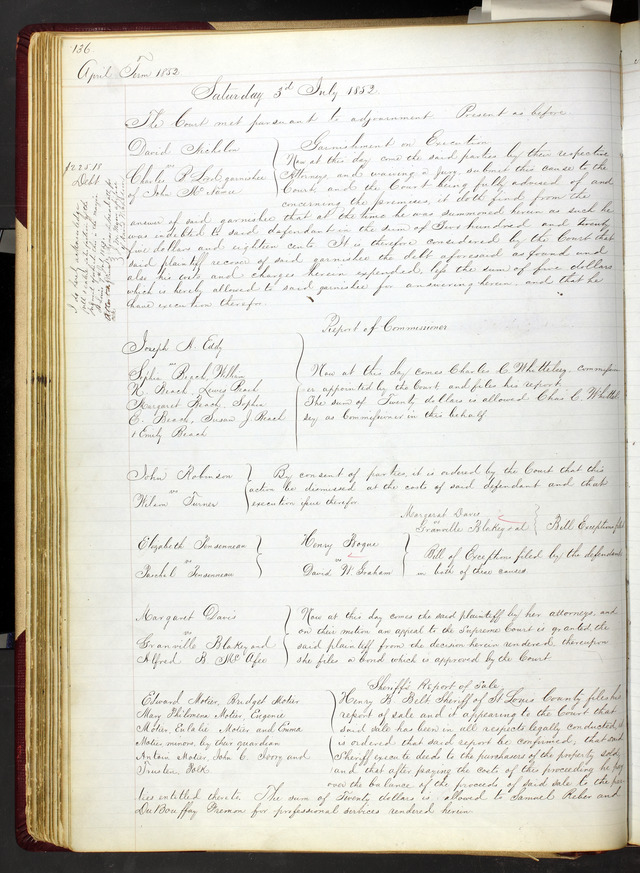 136
April Term 1852.
Saturday 3d July 1852
The Court met pursuant to adjournment Present as before.
David Nicholson
vs
Charles P. garnishee
of John
$225.18
Debt
Garnishment on Execution
Now at this day come the said parties by their respective
Attorneys and waiving a jury submit this cause to the
Court, and the Court being fully advised of and
concerning the premises, it doth find from the
answer of said garnishee that at the time he was summoned herein as such he
was indebted to said defendant in the sum of Two hundred and twenty
five dollars and eighteen cents. It is therefore considered by the Court that
said plaintiff recover of said garnishee the debt aforesaid as found and
also the costs and charges herein expended, less the sum of five dollars
which is hereby allowed to said garnishee for answering herein, and that he
have execution therefor.
Report of Commissioner
Joseph A. Eddy
vs
Sophia Beach, William
R. Beach, Lewis Beach
Margaret Beach, Sophia
E. Beach, Susan J Beach
& Emily Beach
Now at this day comes Charles C. Whittelsey, commission
er appointed by the Court and files his report.
The sum of Twenty dollars is allowed Chas C. Whittel
sey as Commissioner in this behalf
John Robinson
vs
Turner
By consent of parties, it is ordered by the Court that this
action be dismissed at the costs of said defendant and that
execution issue therefor
Margaret Davis
vs
Granville Blakey et al
Bill Exceptions filed
Elizabeth
vs
Henry
vs
David W. Graham
Bill of Exceptions filed by the defendant
in both of these causes
Margaret Davis
vs
Granville Blakey and
Alfred B McAfee
Now at this day comes the said plaintiff by her attorneys, and
on their motion an appeal to the Supreme Court is granted the
said plaintiff from the decision herein rendered thereupon
she files a bond which is approved by the Court
Sheriff's Report of Sale
Edward Motier, Bridget Motier
Mary Philomena Motier, Eugenie
Motier, Eulalie Motier and Emma
Motier, minors, by their guardian
Antoin Motier, John C. Ivory and
Trusten Polk
Henry B. Belt Sheriff of St Louis County files his
report of sale and it appearing to the Court that
said sale has been in all respects legally conducted, it
is ordered that said report be confirmed, that said
Sheriff execute deeds to the purchasers of the property sold,
and that after paying the costs of this proceeding he pay
over the balance of the proceeds of said sale to the par
ties entitled thereto. The sum of Twenty dollars is allowed to Samuel Reber and
for professional services rendered herein